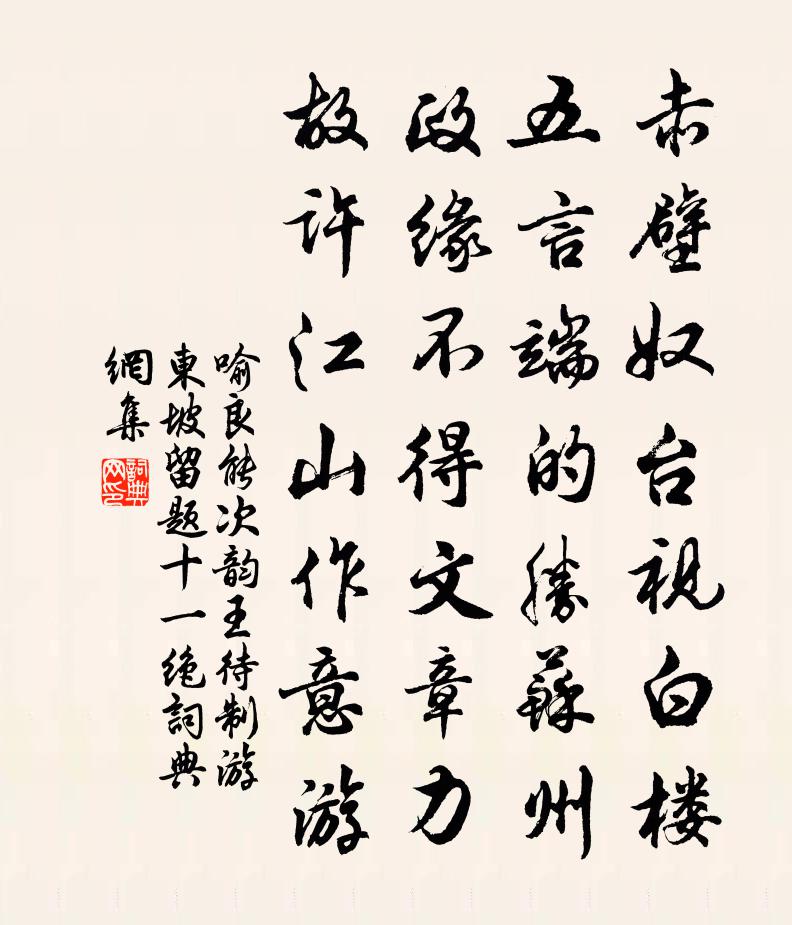 赤壁奴台视白楼
五言端的勝蘇州
政缘不得文章力
故许江山作意游
喻良能次韵王待制游
東坡留题十一绝詞典
網集
詞典网印